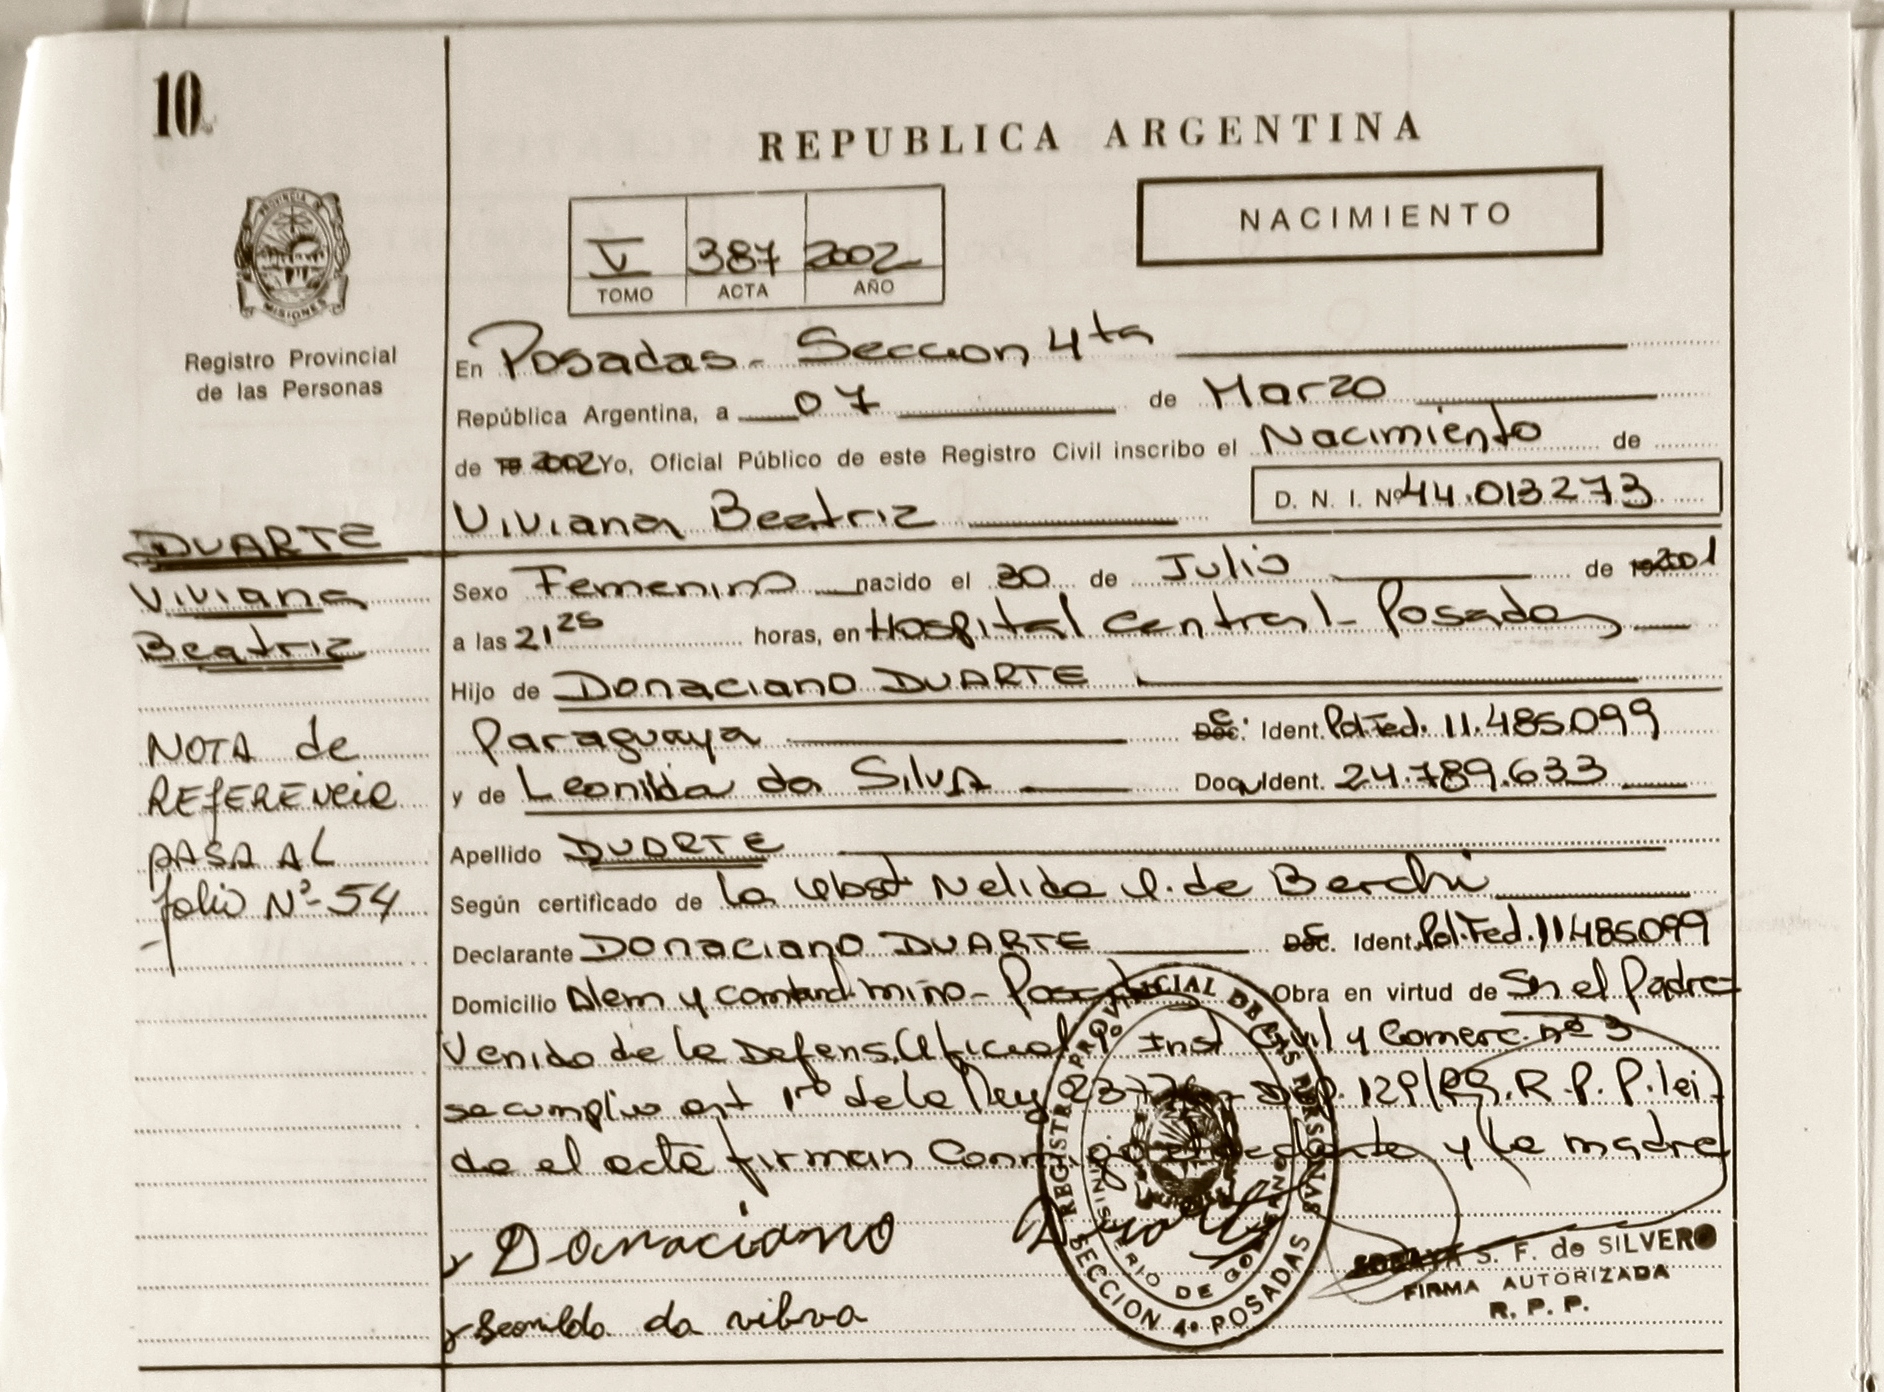 10
REPUBLICA ARGENTINA
NACIMIENTO
PROVINCIA DE
MISIONES
V 387 2002
TOMO ACTA AÑO
Registro Provincial
de las Personas
En Posadas - Seccion 4ta
República Argentina, a 07 de Marzo
de 19 2002 Yo, Oficial Público de este Registro Civil inscribo el Nacimiento de
D. N. I. Nº 44.013273
Viviana Beatriz
DUARTE
Viviana
Beatriz
Sexo Femenino nacido el 30 de Julio de 19 2001
a las 21 25 horas, en Hospital Central - Posadas
Hijo de Donaciano DUARTE
Paraguaya C. Ident. Pol.Fed. 11.485.099
y de Leonilda da Silva Doc. Ident. 24.789.633
NOTA de
REFERENCIA
PASA AL
folio Nº 54
Apellido DUARTE
Según certificado de la Obst Nelida de Berchi
Declarante DONACIANO DUARTE C. Ident. Pol.Fed. 11485099
Domicilio Alem y comand. miño - Posadas Obra en virtud de Sn el Padre
Venido de la Defens. Oficial 1º Inst Civil y Comerc. nº 3
se cumplio art 1º de la ley R.P.P. lei
do el acta firman Conmigo el y la madre
Donaciano Duarte
Leonilda da silva
REGISTRO PROVINCIAL DE LAS PERSONAS
MINISTERIO DE GOBIERNO
SECCION 4ª POSADAS
SORAYA S. F. de SILVERO
FIRMA AUTORIZADA
R. P. P.